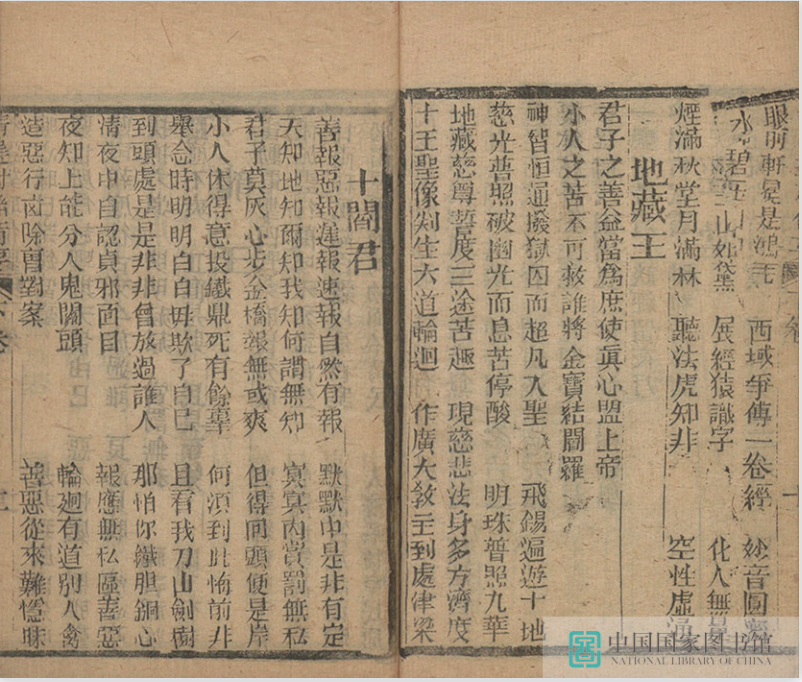 眼前軒冕是鴻毛 西域爭傳一卷經 妙音圓
水碧 山如黛 展經猿識字 化人無
煙滿秋堂月滿林 聽法虎知非 空性虛
地藏王
君子之善益當爲庶使眞心盟上帝
小人之苦不可救誰將金寶結閻羅
神智恒通撥獄囚而超凡入聖 飛錫遍遊十地
慈光普照破幽光而息苦停酸 明珠普照九華
地藏慈尊誓度三途苦趣 現慈悲法身多方濟度
十王聖像判生六道輪迴 作廣大敎主到處律梁
十閻君
善報惡報遲報速報自然有報 默默中是非有定
天知地知爾知我知何謂無知 冥冥內賞罰無私
君子莫灰心步金橋報無或爽 但得回頭便是岸
小人休得意投鐵鼎死有餘辜 何須到此悔前非
舉念時明明白白毋欺了自己 且看我刀山劍樹
到頭處是是非非曾放過誰人 那怕你鐵胆銅心
清夜中自認貞邪面目 報應無私區善惡
夜知上能分人鬼關頭 輪迴有道別人禽
造惡行凶除冊對案 善惡從來難懦昧
中国国家图书馆
NATIONAL LIBRARY OF CHINA